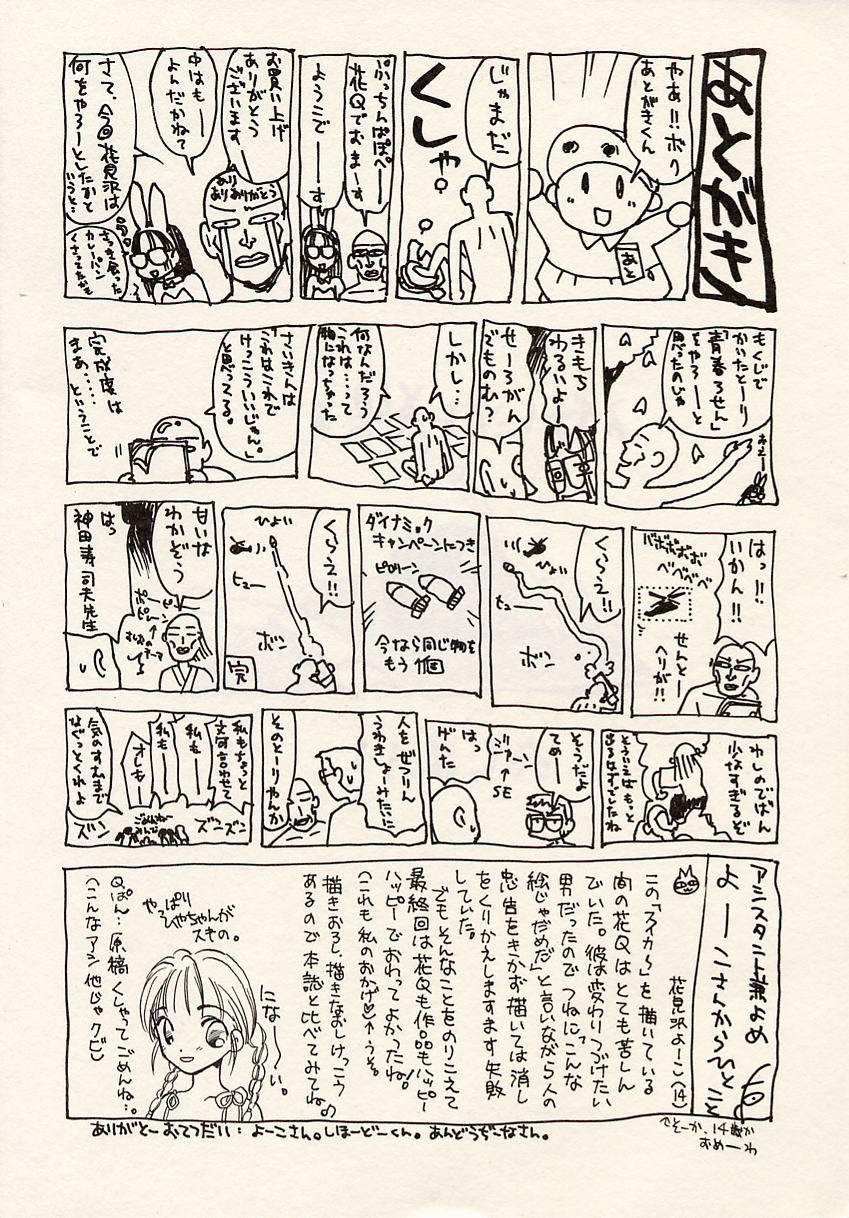 あとがき
やぁ!!ボク
あとがきくん
あと
じゃまだ
くしゃ
ぷっちんぱぽぺー
花Qでおまーす
ようこでーーす
お買い上げ
ありがとう
ございます
あり
ありありがとう
中はもー
よんだかねて
さて、今回花見沢は
何をやろーとしたかと
いうと…
さっき食った
カレーパン
くさってたぞ
もくじで
かいたとーり
「青春ろせん」
をやろーと
思ったのじゃ
おえー
きもち
わるいよー
せーろがん
でものむ?
しかし…
何なんだろう
これは…って
物になっちゃった
さいきんは
「これはこれで
けっこういいじゃん。」
と思ってる。
完成度は
まあ……
ということで
はっ!!
いかん!!
バボボボボボ
ベベベベ
せんとー
ヘリが!!
くらえ!!
ひょい
ヒュー
ボン
ダイナミック
キャンペーンにつき
ピローン
今なら同じ物を
もう1個
くらえ!!
ひょい
ヒュー
ボン
完
甘いな
わかぞう
ポーピー
ポピレー
はっ
神田寿司夫先生
わしのでばん
少なすぎるぞ
とゆういえばもっと
出るはずでしたね
そうだよ
てめー
ジャーン
↑
SE
はっ
げんた
人をぜつりん
うわきしょーみたいに
そのとーりやんか
私もちょっと
文句言わせて
私も
私も
オレもー
ごめんねー
みんなー
ズンズン
ズン
気のすむまで
なぐっとくれよ
アシスタント兼よめ
よーこさんからひとこと
花見沢よーこ(14)
この「スイカら」を描いている
間の花Qはとても苦しん
でいた。彼は変わりつづけたい
男だったのでつねに「こんな
絵じゃだめだ」と言いながら人の
忠告をきかず描いては消し
をくりかえしますます失敗
していた。
でもそんなことをのりこえて
最終回は花Qも作品もハッピー
ハッピーでおわってよかったね!
(これも私のおかげ♡)↑うそ。
描きおろし、描きなおしけっこう
あるので本誌と比べてみてね♪
にな〜い。
やっぱり
ひやちゃんが
スキの。
Qぱん…原稿くしゃってごめんね…。
(こんなアシ他じゃクビ)
ありがとーおてつだい:よーこさん。しほーどーくん。あんどうぢーなさん。
そーか、14歳か
おめーわ